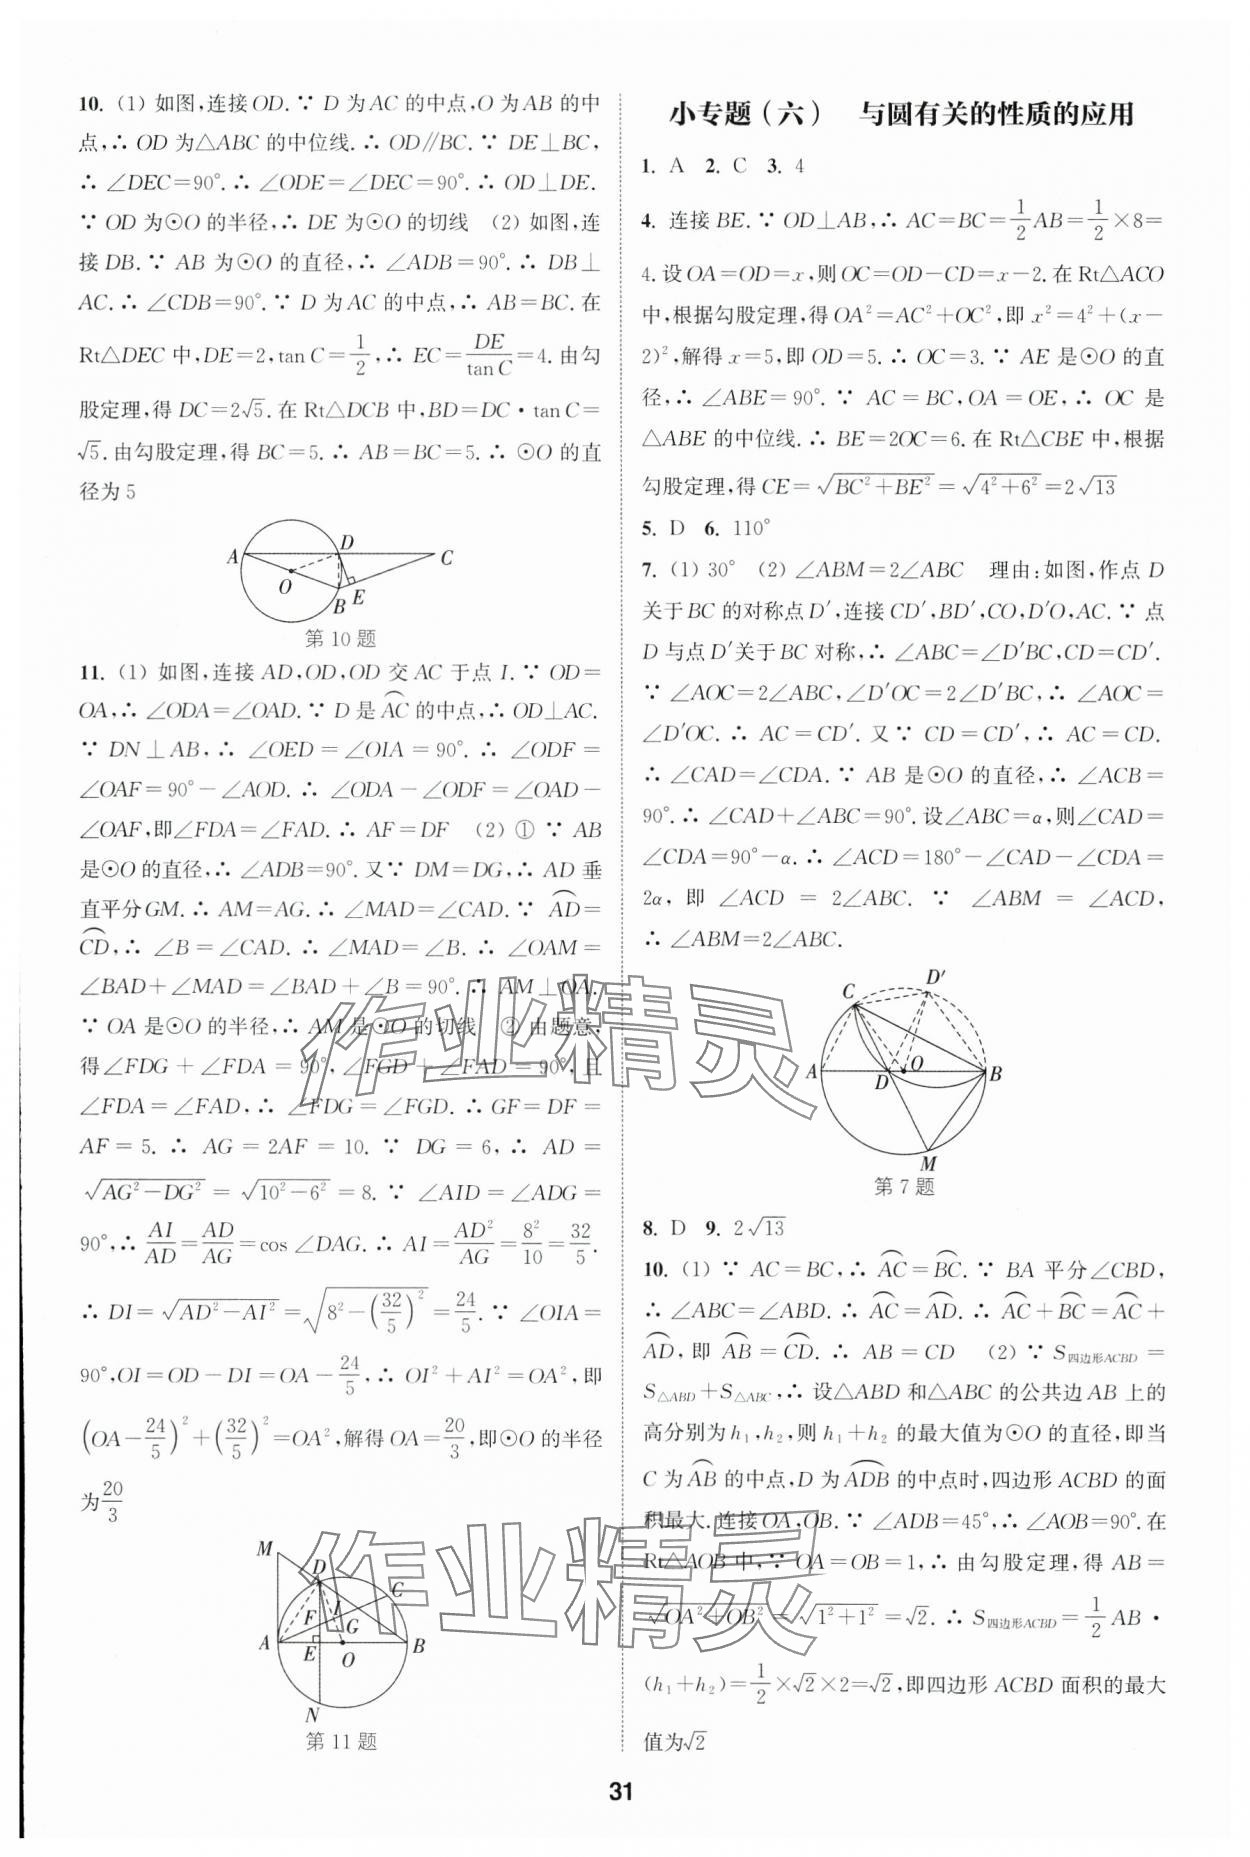 10. (1) 如图,连接OD.∵ D 为 AC 的中点,O 为 AB 的中
点,∴ OD 为△ABC 的中位线.∴ OD∥BC.∵ DE⊥BC,
∴ ∠DEC=90°.∴ ∠ODE=∠DEC=90°.∴ OD⊥DE.
∵ OD 为⊙O 的半径,∴ DE 为⊙O 的切线 (2) 如图,连
接 DB.∵ AB 为⊙O 的直径,∴ ∠ADB=90°.∴ DB⊥
AC.∴ ∠CDB=90°.∵ D 为 AC 的中点,∴ AB=BC.在
Rt△DEC 中,DE=2,tan C=1/2,∴ EC=DE/tan C=4.由勾
股定理,得 DC=2√5.在 Rt△DCB 中,BD=DC·tan C=
√5.由勾股定理,得 BC=5.∴ AB=BC=5.∴ ⊙O 的直
径为 5
A D C O B E
第 10 题
11. (1) 如图,连接 AD,OD,OD 交 AC 于点 I.∵ OD=
OA,∴ ∠ODA=∠OAD.∵ D 是⌒AC的中点,∴ OD⊥AC.
∵ DN⊥AB,∴ ∠OED=∠OIA=90°.∴ ∠ODF=
∠OAF=90°−∠AOD.∴ ∠ODA−∠ODF=∠OAD−
∠OAF,即∠FDA=∠FAD.∴ AF=DF (2) ① ∵ AB
是⊙O 的直径,∴ ∠ADB=90°.又∵ DM=DG,∴ AD 垂
直平分GM.∴ AM=AG.∴ ∠MAD=∠CAD.∵ ⌒AD=
⌒CD,∴ ∠B=∠CAD.∴ ∠MAD=∠B.∴ ∠OAM=
∠BAD+∠MAD=∠BAD+∠B=90°.∴ AM⊥OA.
∵ OA 是⊙O 的半径,∴ AM 是⊙O 的切线 ② 由题意,
得∠FDG+∠FDA=90°,∠FGD+∠FAD=90°,且
∠FDA=∠FAD,∴ ∠FDG=∠FGD.∴ GF=DF=
AF=5.∴ AG=2AF=10.∵ DG=6,∴ AD=
√(AG²−DG²)=√(10²−6²)=8.∵ ∠AID=∠ADG=
90°,∴ AI/AD=AD/AG=cos∠DAG.∴ AI=AD²/AG=8²/10=32/5.
∴ DI=√(AD²−AI²)=√(8²−(32/5)²)=24/5.∵ ∠OIA=
90°,OI=OD−DI=OA−24/5,∴ OI²+AI²=OA²,即
(OA−24/5)²+(32/5)²=OA²,解得OA=20/3,即⊙O 的半径
为20/3
M D C F I G A E O B N
第 11 题
小专题(六) 与圆有关的性质的应用
1. A 2. C 3. 4
4. 连接 BE.∵ OD⊥AB,∴ AC=BC=1/2AB=1/2×8=
4.设OA=OD=x,则OC=OD−CD=x−2.在 Rt△ACO
中,根据勾股定理,得 OA²=AC²+OC²,即 x²=4²+(x−
2)²,解得 x=5,即 OD=5.∴ OC=3.∵ AE 是⊙O 的直
径,∴ ∠ABE=90°.∵ AC=BC,OA=OE,∴ OC 是
△ABE 的中位线.∴ BE=2OC=6.在 Rt△CBE 中,根据
勾股定理,得 CE=√(BC²+BE²)=√(4²+6²)=2√13
5. D 6. 110°
7. (1) 30° (2) ∠ABM=2∠ABC 理由:如图,作点 D
关于 BC 的对称点 D′,连接 CD′,BD′,CO,D′O,AC.∵ 点
D 与点 D′关于 BC 对称,∴ ∠ABC=∠D′BC,CD=CD′.
∵ ∠AOC=2∠ABC,∠D′OC=2∠D′BC,∴ ∠AOC=
∠D′OC.∴ AC=CD′.又∵ CD=CD′,∴ AC=CD.
∴ ∠CAD=∠CDA.∵ AB 是⊙O 的直径,∴ ∠ACB=
90°.∴ ∠CAD+∠ABC=90°.设∠ABC=α,则∠CAD=
∠CDA=90°−α.∴ ∠ACD=180°−∠CAD−∠CDA=
2α,即 ∠ACD=2∠ABC.∵ ∠ABM=∠ACD,
∴ ∠ABM=2∠ABC.
D′ C A D O B M
第 7 题
8. D 9. 2√13
10. (1) ∵ AC=BC,∴ ⌒AC=⌒BC.∵ BA 平分∠CBD,
∴ ∠ABC=∠ABD.∴ ⌒AC=⌒AD.∴ ⌒AC+⌒BC=⌒AC+
⌒AD,即 ⌒AB=⌒CD.∴ AB=CD (2) ∵ S四边形ACBD=
S△ABD+S△ABC,∴ 设△ABD 和△ABC 的公共边 AB 上的
高分别为 h₁,h₂,则 h₁+h₂ 的最大值为⊙O 的直径,即当
C 为⌒AB 的中点,D 为⌒ADB的中点时,四边形 ACBD 的面
积最大.连接OA,OB.∵ ∠ADB=45°,∴ ∠AOB=90°.在
Rt△AOB 中,∵ OA=OB=1,∴ 由勾股定理,得 AB=
√(OA²+OB²)=√(1²+1²)=√2.∴ S四边形ACBD=1/2 AB·
(h₁+h₂)=1/2×√2×2=√2,即四边形 ACBD 面积的最大
值为√2
作业精灵
作业精灵
31